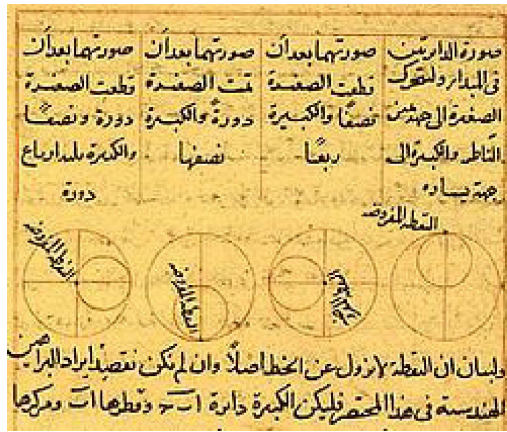 صورة الدايرتين
في المبدأ ولتتحرك
الصغيرة الى جهة يمين
الناظر والكبيرة الى
جهة يساره
صورتهما بعد ان
قطعت الصغيرة
نصفًا والكبيرة
ربعًا
صورتهما بعد ان
تمت الصغيرة
دورةً والكبيرة
نصفها
صورتهما بعد ان
قطعت الصغيرة
دورة ونصفًا
والكبيرة ثلثة ارباع
دورة
النقطة المفروضة
النقطة المفروضة
النقطة المفروضة
ولبيان ان النقطة لا تزول عن الخط اصلًا وان لم نكن نقصد ايراد البراهين
الهندسية في هذا المختصر فليكن الكبيرة دايرة وقطرها اب ومركزها